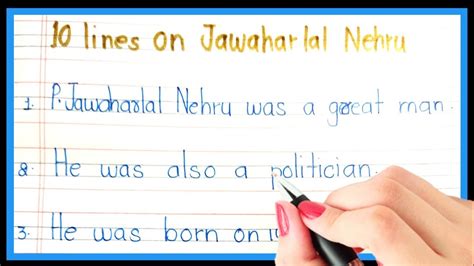 10 lines on Jawaharlal Nehru
1. P. Jawaharlal Nehru was a great man.
2. He was also a politician.
3. He was born on